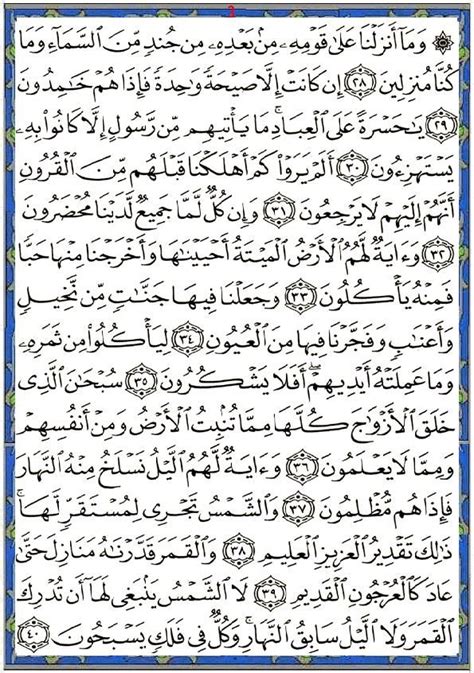 3
۞ وَمَآ أَنزَلْنَا عَلَىٰ قَوْمِهِۦ مِنۢ بَعْدِهِۦ مِن جُندٍ مِّنَ ٱلسَّمَآءِ وَمَا
كُنَّا مُنزِلِينَ ﴿٢٨﴾ إِن كَانَتْ إِلَّا صَيْحَةً وَٰحِدَةً فَإِذَا هُمْ خَٰمِدُونَ
﴿٢٩﴾ يَٰحَسْرَةً عَلَى ٱلْعِبَادِ ۚ مَا يَأْتِيهِم مِّن رَّسُولٍ إِلَّا كَانُوا۟ بِهِۦ
يَسْتَهْزِءُونَ ﴿٣٠﴾ أَلَمْ يَرَوْا۟ كَمْ أَهْلَكْنَا قَبْلَهُم مِّنَ ٱلْقُرُونِ
أَنَّهُمْ إِلَيْهِمْ لَا يَرْجِعُونَ ﴿٣١﴾ وَإِن كُلٌّ لَّمَّا جَمِيعٌ لَّدَيْنَا مُحْضَرُونَ
﴿٣٢﴾ وَءَايَةٌ لَّهُمُ ٱلْأَرْضُ ٱلْمَيْتَةُ أَحْيَيْنَٰهَا وَأَخْرَجْنَا مِنْهَا حَبًّا
فَمِنْهُ يَأْكُلُونَ ﴿٣٣﴾ وَجَعَلْنَا فِيهَا جَنَّٰتٍ مِّن نَّخِيلٍ
وَأَعْنَٰبٍ وَفَجَّرْنَا فِيهَا مِنَ ٱلْعُيُونِ ﴿٣٤﴾ لِيَأْكُلُوا۟ مِن ثَمَرِهِۦ
وَمَا عَمِلَتْهُ أَيْدِيهِمْ ۖ أَفَلَا يَشْكُرُونَ ﴿٣٥﴾ سُبْحَٰنَ ٱلَّذِى
خَلَقَ ٱلْأَزْوَٰجَ كُلَّهَا مِمَّا تُنۢبِتُ ٱلْأَرْضُ وَمِنْ أَنفُسِهِمْ
وَمِمَّا لَا يَعْلَمُونَ ﴿٣٦﴾ وَءَايَةٌ لَّهُمُ ٱلَّيْلُ نَسْلَخُ مِنْهُ ٱلنَّهَارَ
فَإِذَا هُم مُّظْلِمُونَ ﴿٣٧﴾ وَٱلشَّمْسُ تَجْرِى لِمُسْتَقَرٍّ لَّهَا ۚ
ذَٰلِكَ تَقْدِيرُ ٱلْعَزِيزِ ٱلْعَلِيمِ ﴿٣٨﴾ وَٱلْقَمَرَ قَدَّرْنَٰهُ مَنَازِلَ حَتَّىٰ
عَادَ كَٱلْعُرْجُونِ ٱلْقَدِيمِ ﴿٣٩﴾ لَا ٱلشَّمْسُ يَنۢبَغِى لَهَآ أَن تُدْرِكَ
ٱلْقَمَرَ وَلَا ٱلَّيْلُ سَابِقُ ٱلنَّهَارِ ۚ وَكُلٌّ فِى فَلَكٍ يَسْبَحُونَ ﴿٤٠﴾